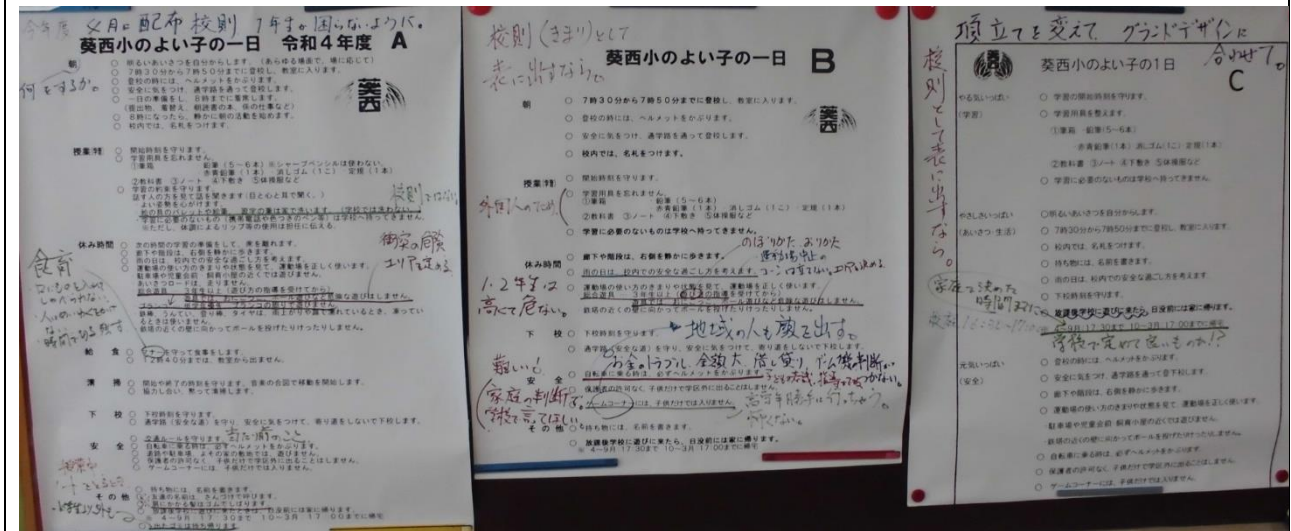 今年度 4月に配布 校則 1年生が困らないように。
葵西小のよい子の一日 令和4年度 A
何をするか。
朝
○ 明るいあいさつを自分からします。（あらゆる場面で、場に応じて）
○ 7時30分から7時50分までに登校し、教室に入ります。
○ 登校の時には、ヘルメットをかぶります。
○ 安全に気をつけ、通学路を通って登校します。
○ 一日の準備をし、8時までに着席します。
（提出物、着替え、朝読書の本、係の仕事など）
○ 8時になったら、静かに朝の活動を始めます。
○ 校内では、名札をつけます。
葵西
授業
○ 開始時刻を守ります。
○ 学習用具を忘れません。
①筆箱 鉛筆（5～6本）※シャープペンシルは使わない。
赤青鉛筆（1本）・消しゴム（1こ）・定規（1本）
②教科書 ③ノート ④下敷き ⑤体操服など
○ 学習の約束を守ります。
話す人の方を見て話を聞きます（目と心と耳で聞く。）
よい姿勢を心がけます。
絵の具のパレットや絵筆、習字の筆は家で洗います。（学校では洗わない）
学習に必要のないもの（携帯電話や色つきのペン等）は学校へ持ってきません。
※ただし、体調によるリップ等の使用は担任に伝える。
校則ではない。
休み時間
○ 次の時間の学習の準備をして、席を離れます。
○ 廊下や階段は、右側を静かに歩きます。
○ 雨の日は、校内での安全な過ごし方を考えます。
○ 運動場の使い方のきまりや状態を見て、運動場を正しく使います。
駐車場や児童会前、飼育小屋の近くでは遊びません。
あいさつロードは、走りません。
総合遊具 3年生以上（の指導を受けてから）
鉄棒、うんてい、登り棒、タイヤは、雨上がりや霜で濡れているとき、凍っているときは使いません。
鉄塔の近くの壁に向かってボールを投げたりけったりしません。
衝突の危険
エリアを定める
食育
給食
○ マナーを守って食事をします。
○ 12時40分までは、教室から出ません。
清掃
○ 開始や終了の時刻を守ります。音楽の合図で移動を開始します。
○ 協力し合い、黙って清掃します。
下校
○ 下校時刻を守ります。
○ 通学路（安全な道）を守り、安全に気をつけて、寄り道をしないで下校します。
安全
○ 交通ルールを守ります。
当たり前のこと
○ 自転車に乗る時は、必ずヘルメットをかぶります。
○ 道路や駐車場、よその家の敷地では、遊びません。
○ 保護者の許可なく、子供だけで学区外に出ることはしません。
○ ゲームコーナーには、子供だけでは入りません。
その他
○ 持ち物には、名前を書きます。
○ 友達の名前は、さんづけで呼びます。
○ 肩にかかる髪はゴムでしばります。
○ 放課後学校に遊びに来たときは、日没前には家に帰ります。
※ 4～9月 17:30まで 10～3月 17:00までに帰宅
○ 出たゴミは持ち帰ります
校則（きまり）として
表に出すなら。
葵西小のよい子の一日 B
葵西
朝
○ 7時30分から7時50分までに登校し、教室に入ります。
○ 登校の時には、ヘルメットをかぶります。
○ 安全に気をつけ、通学路を通って登校します。
○ 校内では、名札をつけます。
授業
○ 開始時刻を守ります。
○ 学習用具を忘れません。
①筆箱 鉛筆（5～6本）
赤青鉛筆（1本）・消しゴム（1こ）・定規（1本）
②教科書 ③ノート ④下敷き ⑤体操服など
○ 学習に必要のないものは学校へ持ってきません。
外国人のため
のぼりかた おりかた
休み時間
○ 廊下や階段は、右側を静かに歩きます。
○ 雨の日は、校内での安全な過ごし方を考えます。
○ 運動場の使い方のきまりや状態を見て、運動場を正しく使います。
総合遊具 3年生以上（の指導を受けてから）
鉄塔の近くの壁に向かってボールを投げたりけったりしません。
1・2年生は
高くて危ない。
下校
○ 下校時刻を守ります。
地域の人も顔を出す。
○ 通学路（安全な道）を守り、安全に気をつけて、寄り道をしないで下校します。
お金のトラブル 金額大 貸し借り ゲーム機判断が
つかない。
安全
○ 自転車に乗る時は、必ずヘルメットをかぶります。
○ 保護者の許可なく、子供だけで学区外に出ることはしません。
○ ゲームコーナーには、子供だけでは入りません。
高学年勝手に行っちゃう。
難しい！
家庭の判断で。
学校で言ってほしい。
その他
○ 持ち物には、名前を書きます。
○ 放課後学校に遊びに来たら、日没前には家に帰ります。
※ 4～9月 17:30まで 10～3月 17:00までに帰宅
項立てを変えて グランドデザインに
合わせて。
校則として表に出すなら。
葵西
葵西小のよい子の1日
C
やる気いっぱい
（学習）
○ 学習の開始時刻を守ります。
○ 学習用具を整えます。
①筆箱 ・鉛筆（5～6本）
・赤青鉛筆（1本） 消しゴム（1こ）・定規（1本）
②教科書 ③ノート ④下敷き ⑤体操服など
○ 学習に必要のないものは学校へ持ってきません。
やさしさいっぱい
（あいさつ・生活）
○明るいあいさつを自分からします。
○ 7時30分から7時50分までに登校し、教室に入ります。
○ 校内では、名札をつけます。
○ 持ち物には、名前を書きます。
○ 雨の日は、校内での安全な過ごし方を考えます
○ 下校時刻を守ります。
○ 放課後学校に遊びに来たら、日没前には家に帰ります。
※4～9月 17:30まで 10～3月 17:00までに帰宅
家庭で決めた
時間までに
学校で定めて良いものか！？
元気いっぱい
（安全）
○ 登校の時には、ヘルメットをかぶります。
○ 安全に気をつけ、通学路を通って登下校します。
○ 廊下や階段は、右側を静かに歩きます。
○ 運動場の使い方のきまりや状態を見て、運動場を正しく使います。
・駐車場や児童会前、飼育小屋の近くでは遊びません。
・鉄塔の近くの壁に向かってボールを投げたりけったりしません。
○ 自転車に乗る時は、必ずヘルメットをかぶります。
○ 保護者の許可なく、子供だけで学区外に出ることはしません。
○ ゲームコーナーには、子供だけでは入りません。